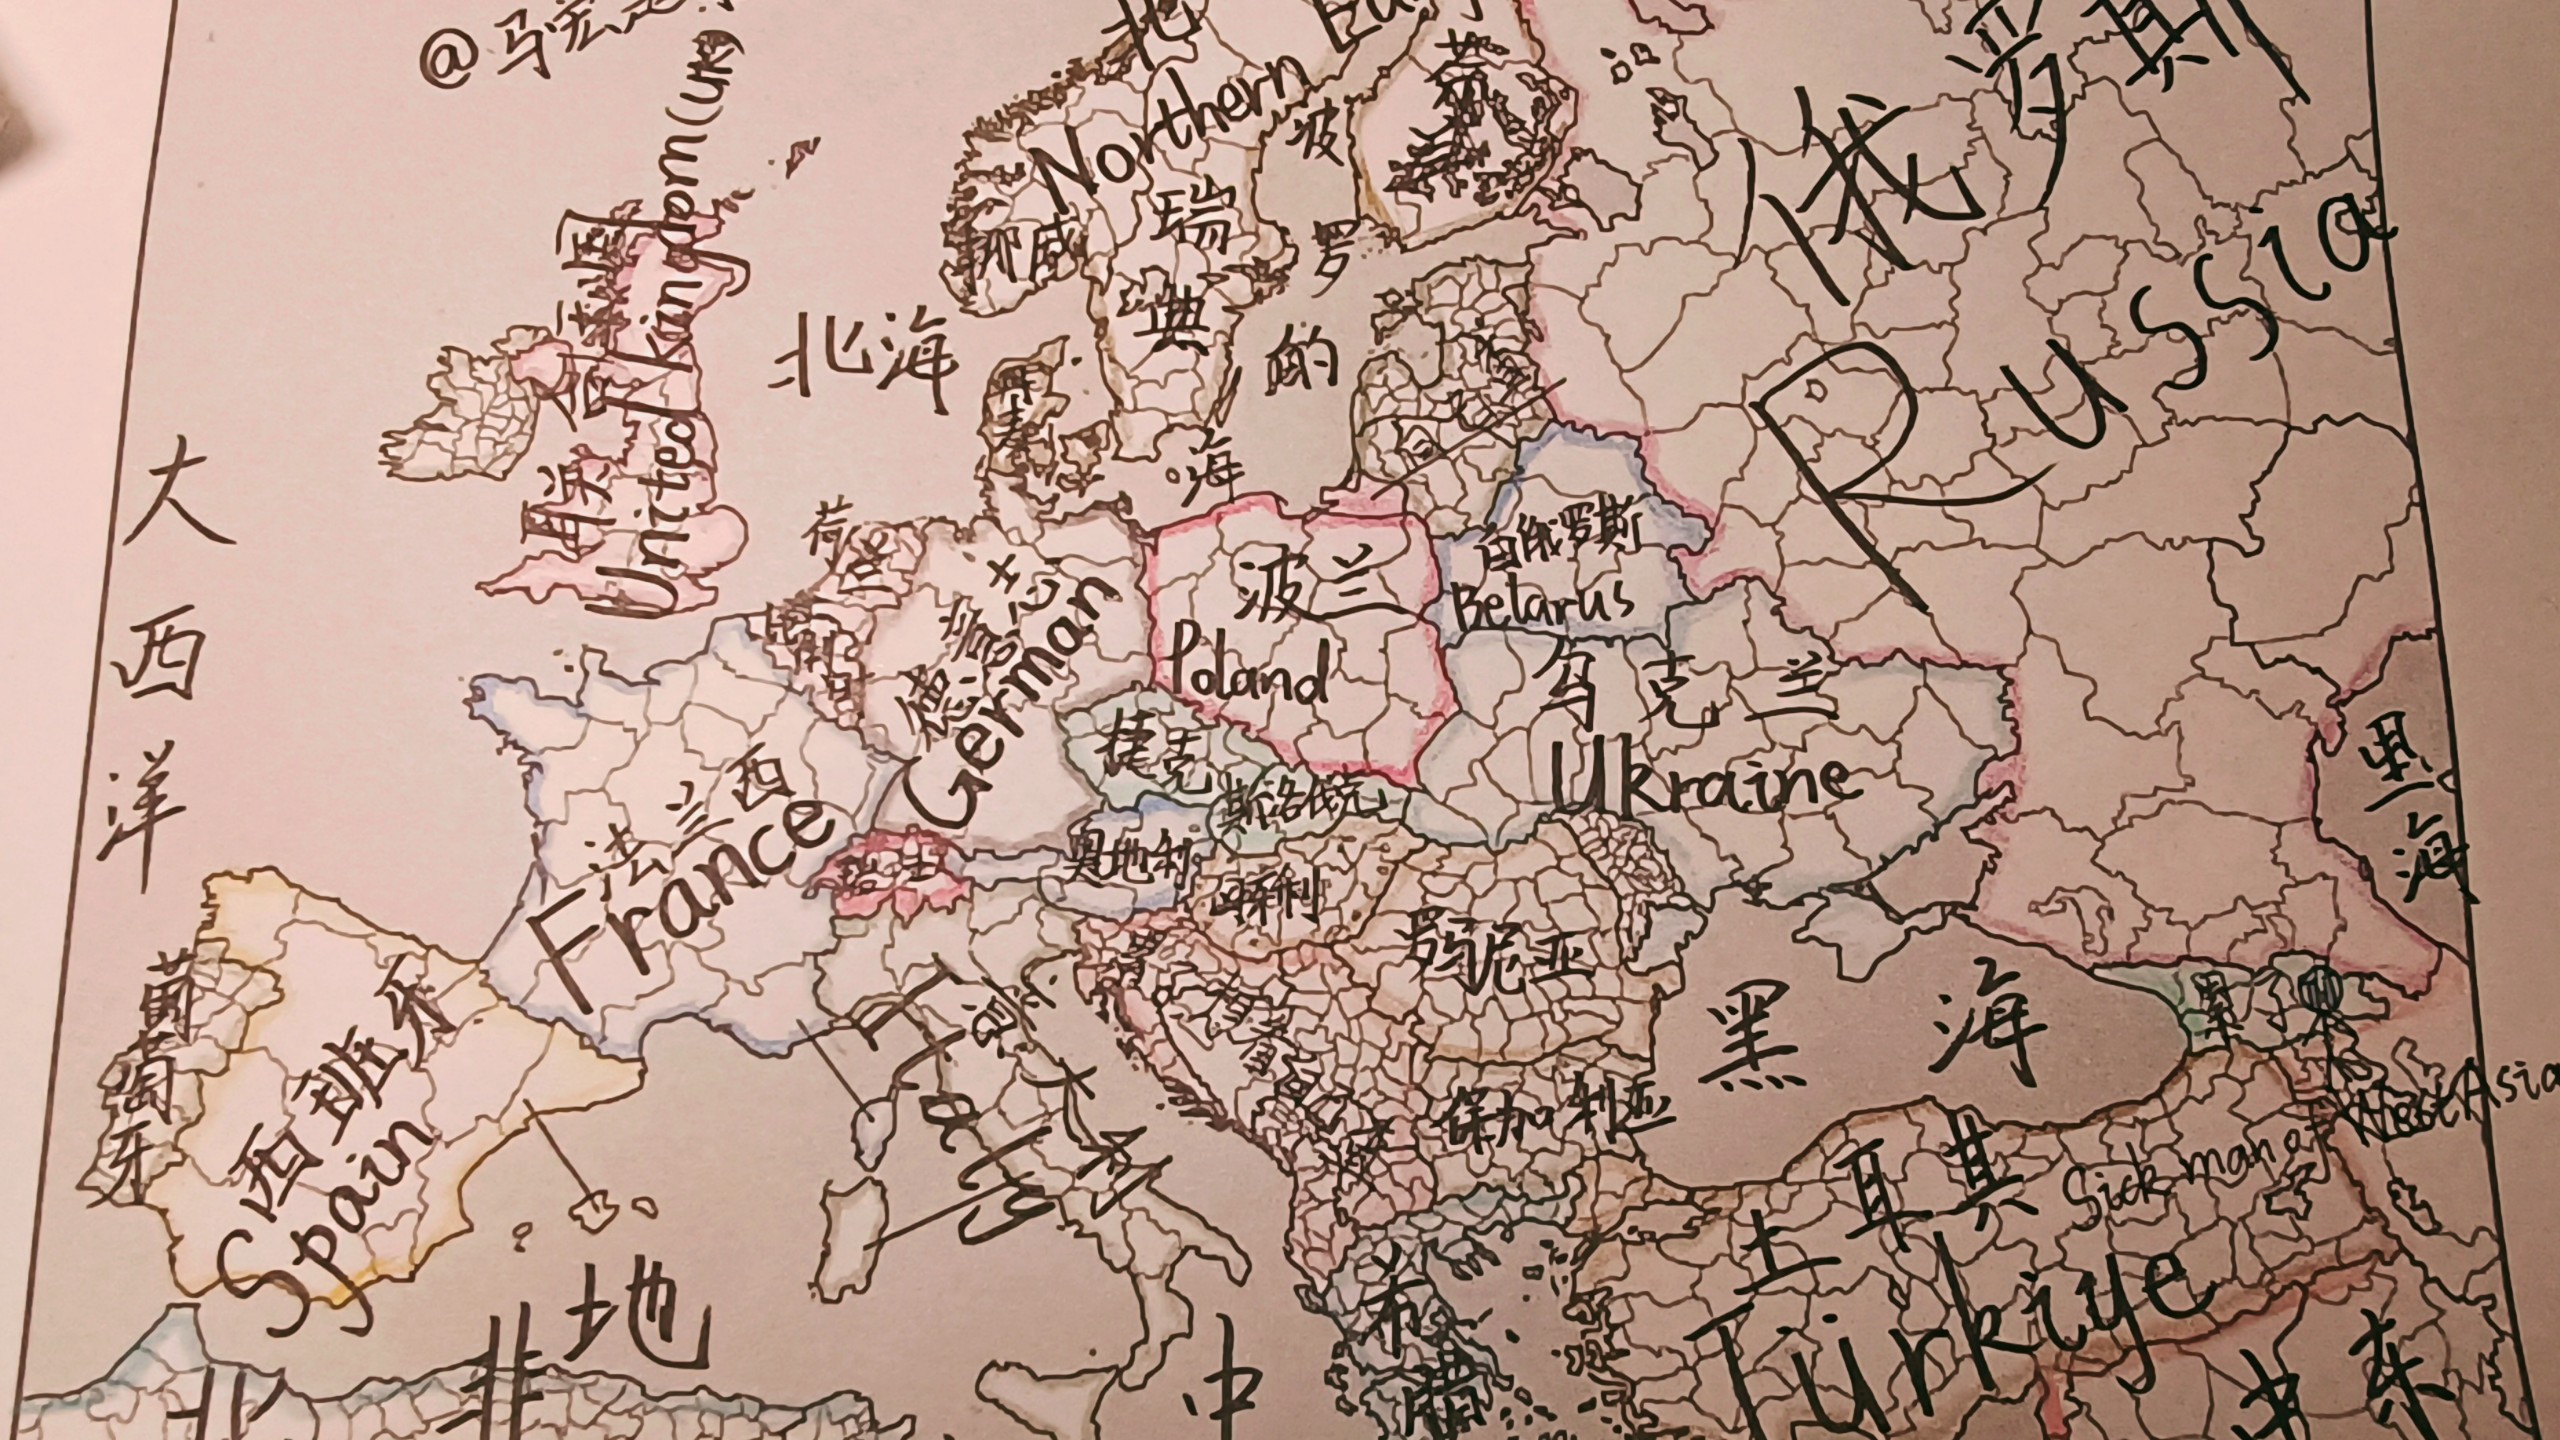 @马宏
北
Northern Eur
俄罗斯
Russia
芬兰
挪威
瑞典
波罗的海
北海
丹麦
United Kingdom(UK)
大西洋
荷兰
比利时
德意志
German
波兰
Poland
白俄罗斯
Belarus
乌克兰
Ukraine
捷克
斯洛伐克
法兰西
France
瑞士
奥地利
匈牙利
罗马尼亚
里海
葡萄牙
西班牙
Spain
意大利
黑海
保加利亚
土耳其
Sick man of West Asia
Türkiye
希腊
地中
北非